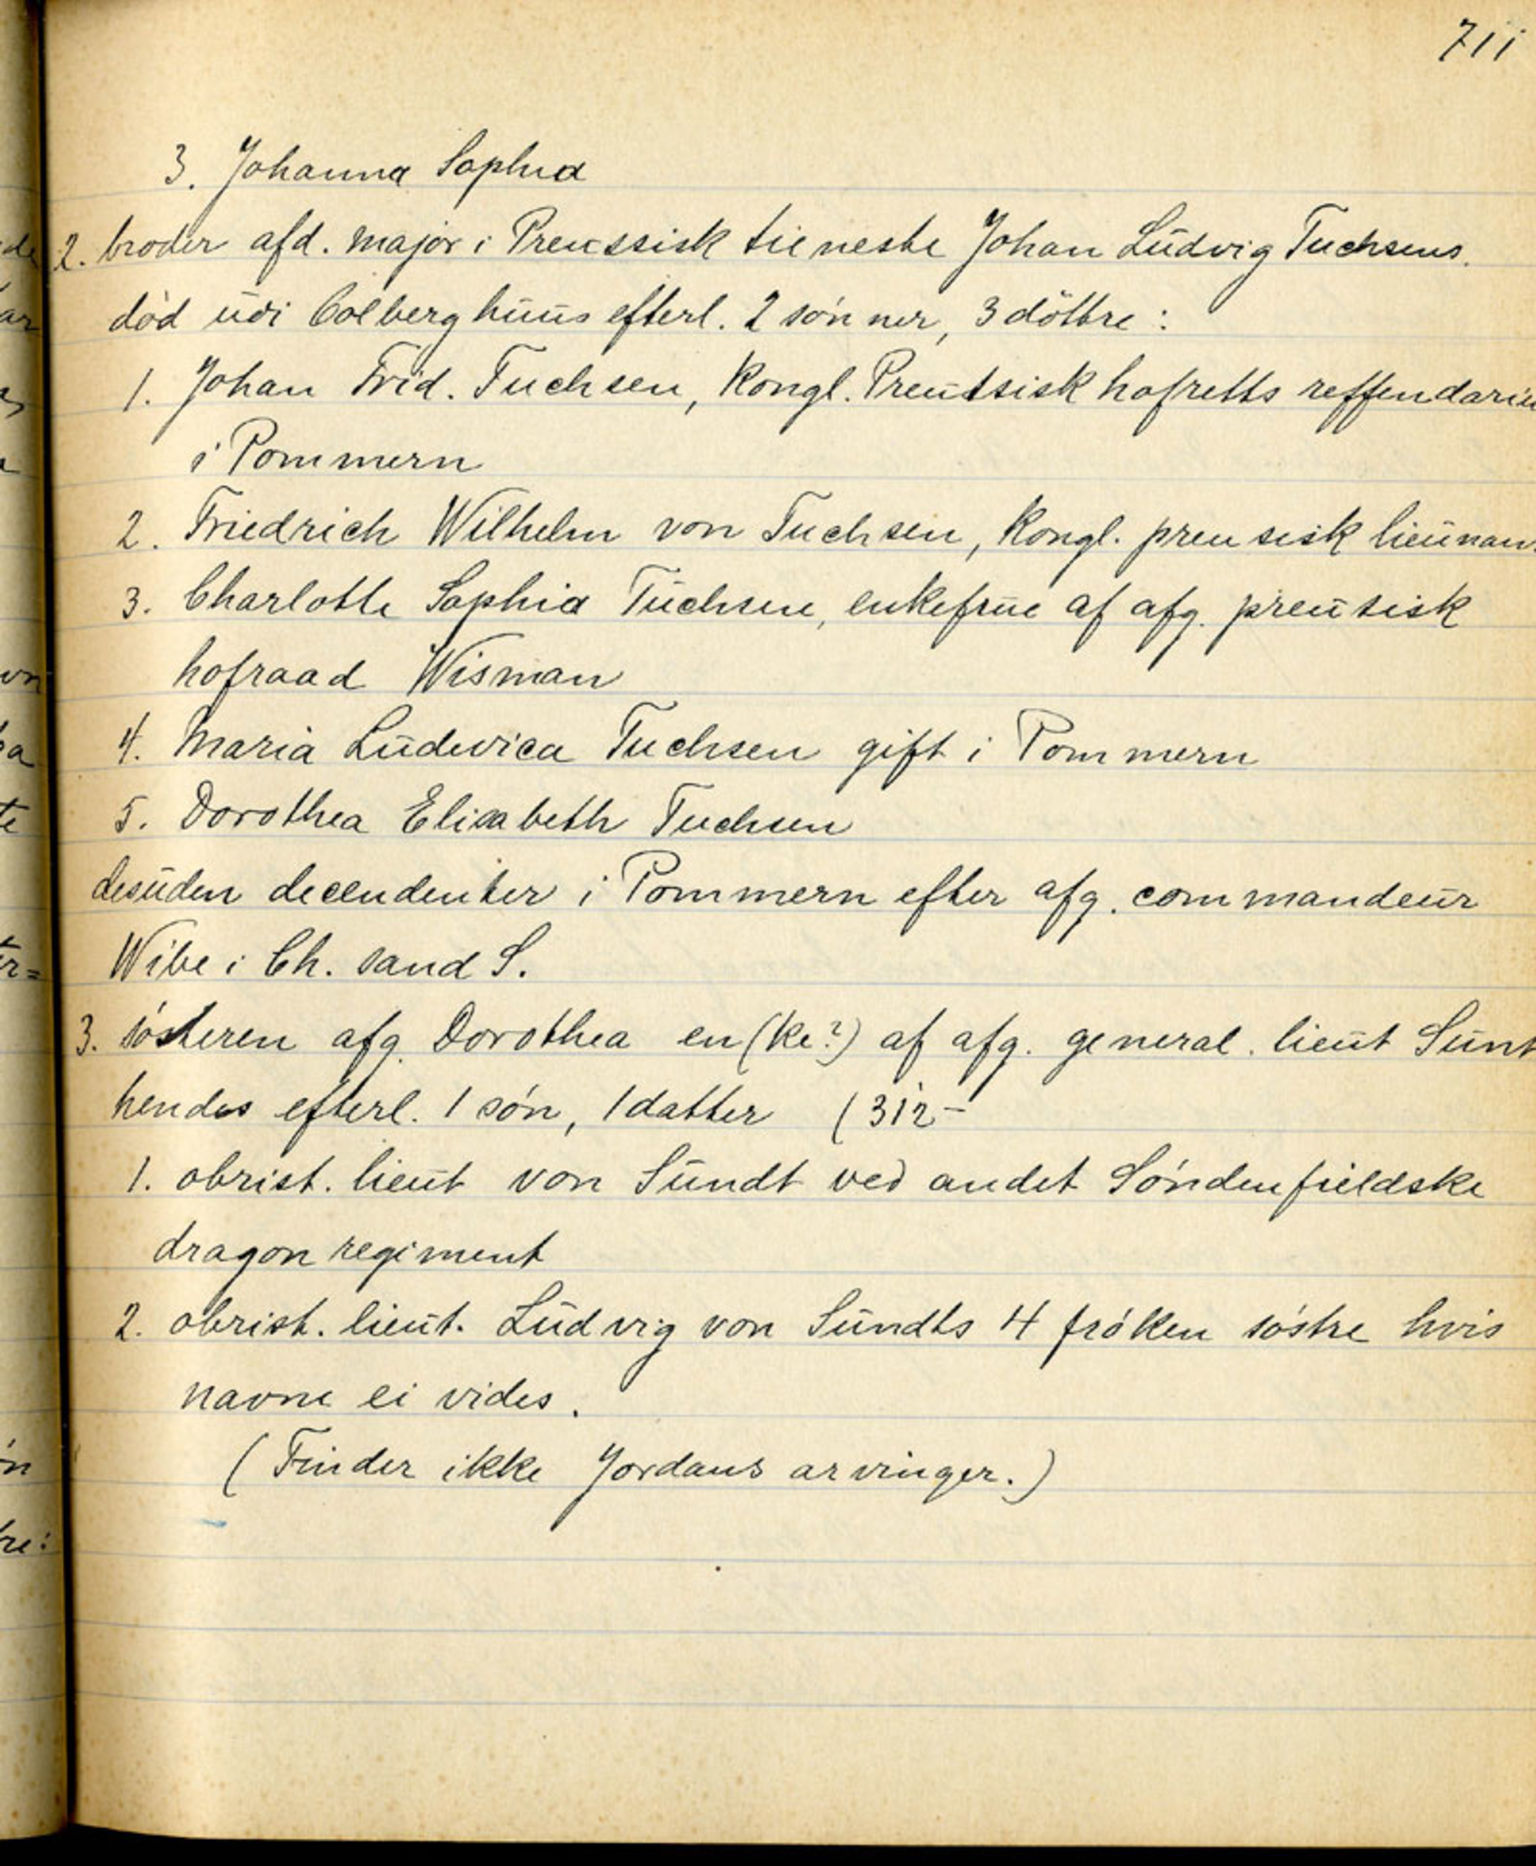 711
3. Johanna Sophia
2. broder afd. major i Preussisk tieneste Johan Ludvig Tuchsens.
död udi Colberg huus efterl. 2 sónner, 3 döttre :
1. Johan Frid. Tuchsen, Kongl. Preutsisk hofretts reffendariu
i Pommern
2. Friedrich Wilhelm von Tuchsen, Kongl. preusisk lieunan
3. Charlotte Sophia Tuchsen, enkefrue af afg. preutisk
hofraad Wisman
4. Maria Ludevica Tuchsen gift i Pommern
5. Dorothea Elisabeth Tuchsen
desuden decendenter i Pommern efter afg. commandeur
Wibe i Ch. sand S.
3. sósteren afg. Dorothea en(ke?) af afg. general. lieut Sunt
hendes efterl. 1 són, 1 datter (312-
1. obrist. lieut von Sundt ved andet Sóndenfieldske
dragon regiment
2. obrist. lieut. Ludvig von Sundts 4 fróken sóstre hvis
navne ei vides.
(Finder ikke Jordans arvinger.)